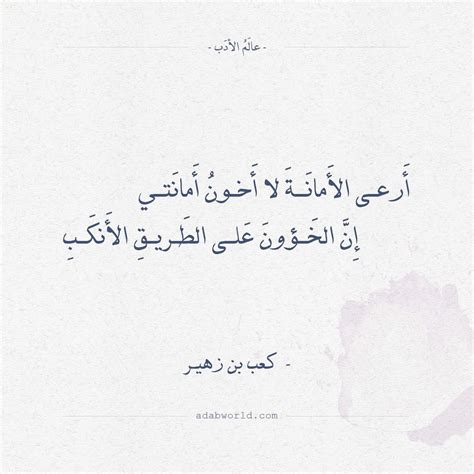 - عالَمُ الأدَب -
أَرعـى الأَمانَــةَ لا أَخـونُ أَمانَتـي
إِنَّ الخَـؤونَ عَلـى الطَـريـقِ الأَنكَـبِ
- كعب بن زهيـر
adabworld.com